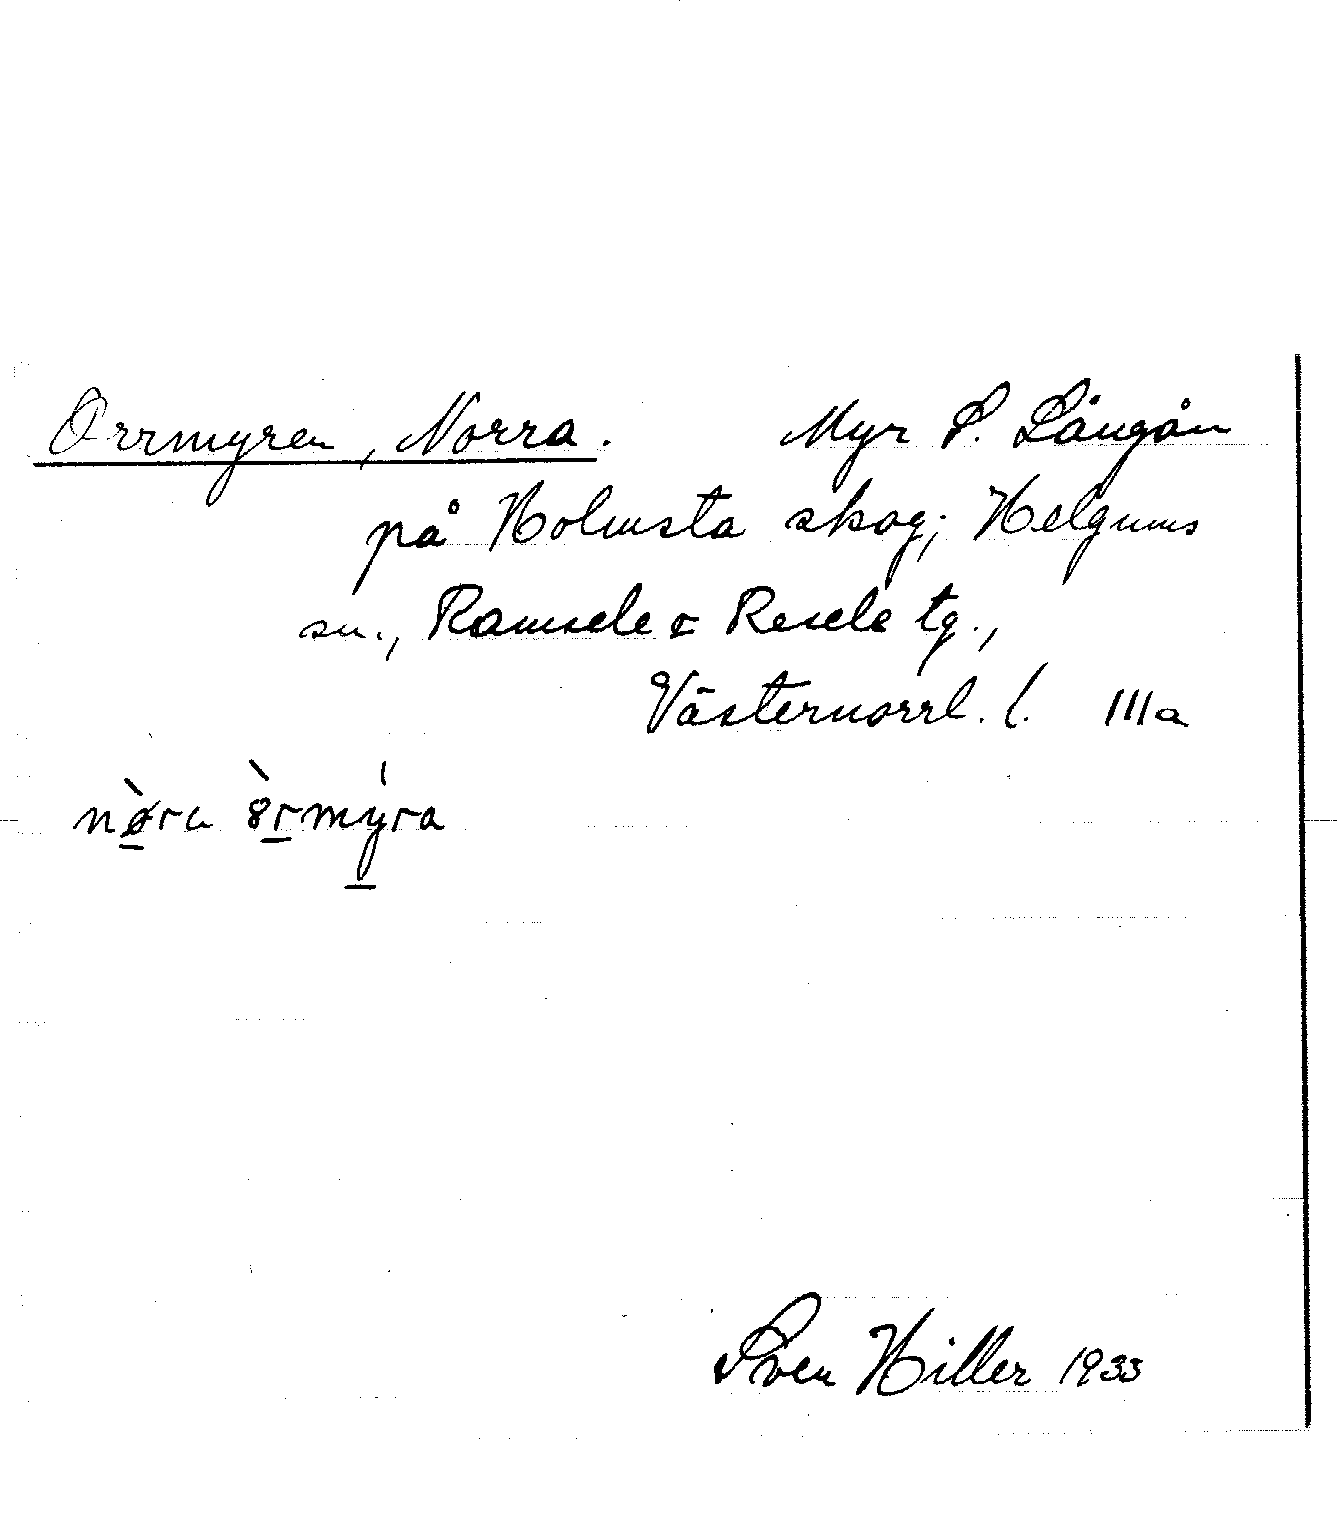 Orrmyren, Norra. Myr S. Långån
på Holmsta skog; Helgums
sn., Ramsele & Resele tg.,
Västernorrl. l. IIIa
Sven Hiller 1933